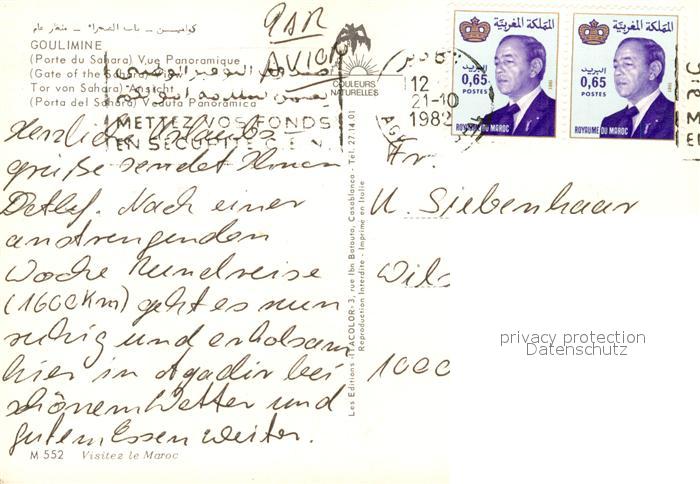 كوليميـن ـ بـاب الصحـراء ـ منظـر عام
GOULIMINE
(Porte du Sahara) Vue Panoramique
(Gate of the Sahara)
Tor von Sahara) Ansicht
(Porta del Sahara) Veduta Panoramica
PAR
AVION
METTEZ VOS FONDS
EN SECURITE C.E.N.
COULEURS
NATURELLES
12
21-10
1982
المملكة المغربية
البريد
0,65
POSTES
ROYAUME DU MAROC
المملكة المغربية
البريد
0,65
POSTES
ROYAUME DU MAROC
Herzliche Urlaubs-
grüße sendet Ihnen
Detlef. Nach einer
anstrengenden
Woche Rundreise
(1600km) geht es nun
ruhig und erholsam
hier in Agadir bei
schönem Wetter und
gutem Essen weiter.
Fr.
U. Siebenhaar
Wils
1000
Les Editions "ITACOLOR" - 3, rue Ibn Batouta, Casablanca - Tel. 27.14.01
Reproduction Interdite - Imprimé en Italie
privacy protection
Datenschutz
M 552 Visitez le Maroc